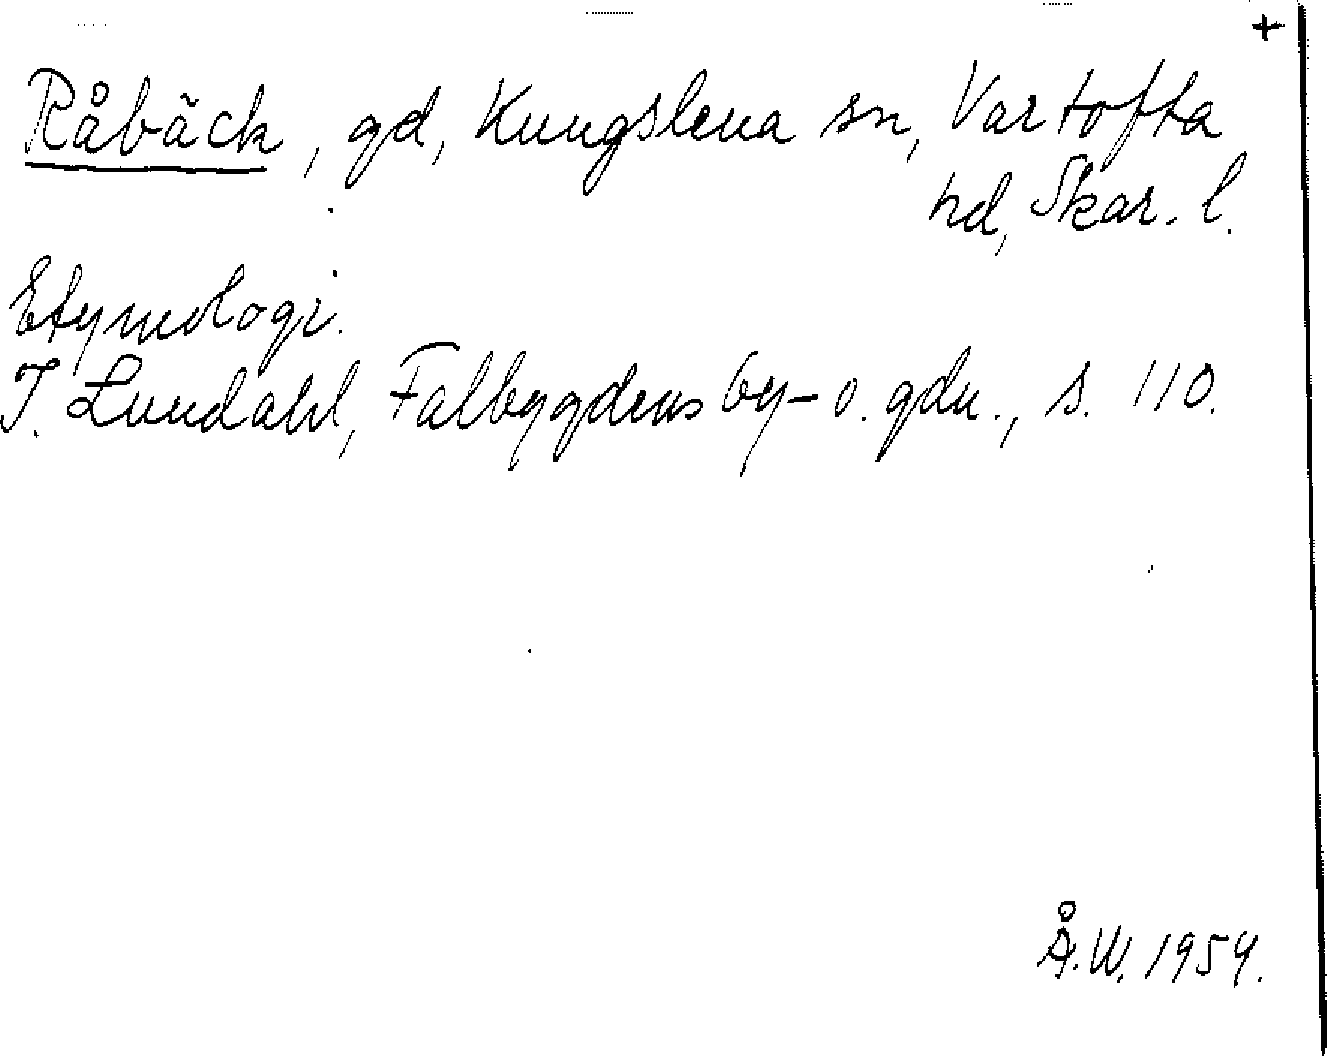 +
Råbäck, gd, Kungslena sn, Vartofta
hd, Skar. l.
Etymologi.
I. Lundahl, Falbygdens by- o. gdn., s. 110.
Å.W. 1954.